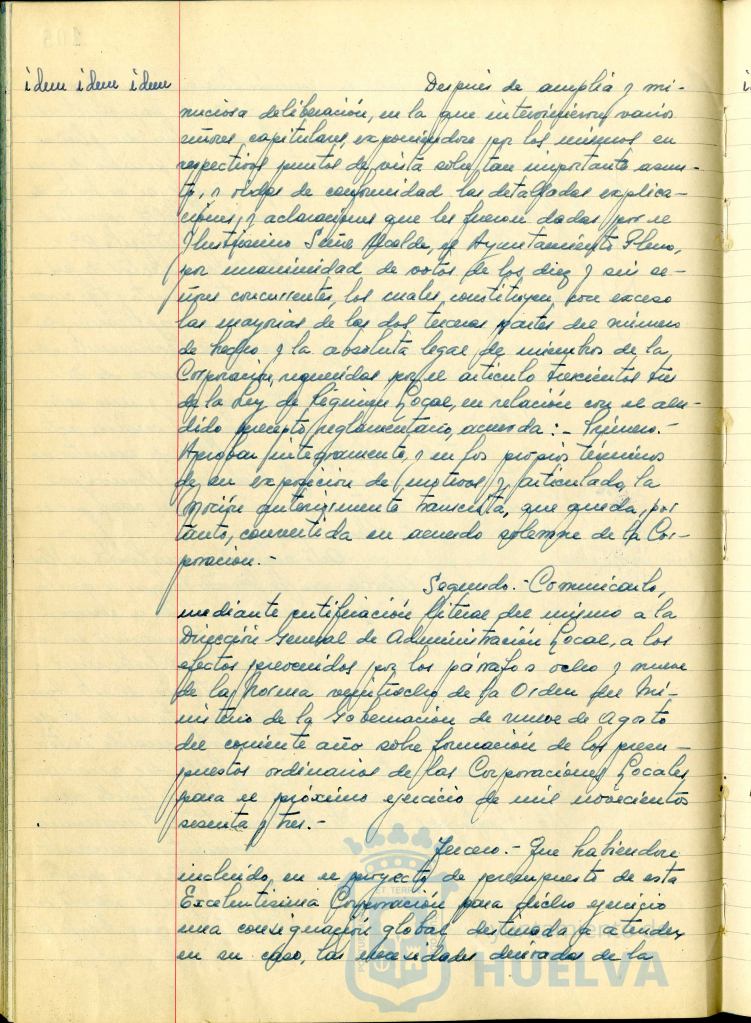 idem idem idem
Después de amplia y mi-
nuciosa deliberación, en la que intervinieron varios
señores capitulares, exponiéndose por los mismos sus
respectivos puntos de vista sobre tan importante asun-
to, y oidas de conformidad las detalladas explica-
ciones, y aclaraciones que les fueron dadas por el
Ilustrísimo Señor Alcalde, el Ayuntamiento Pleno,
por unanimidad de votos de los diez y seis se-
ñores concurrentes, los cuales constituyen con exceso
las mayorías de las dos terceras partes del número
de hecho y la absoluta legal de miembros de la
Corporación, requeridas por el artículo trescientos tres
de la Ley de Régimen Local, en relación con el alu-
dido precepto reglamentario, acuerda: - Primero.-
Aprobar íntegramente, y en los propios términos
de su exposición de motivos y articulado, la
Moción anteriormente transcrita, que queda, por
tanto, convertida en acuerdo solemne de la Cor-
poración.-
Segundo.- Comunicarlo,
mediante certificación literal del mismo a la
Dirección General de Administración Local, a los
efectos prevenidos por los párrafos ocho y nueve
de la Norma veintiocho de la Orden del Mi-
nisterio de la Gobernación de nueve de Agosto
del corriente año sobre formación de los presu-
puestos ordinarios de las Corporaciones Locales
para el próximo ejercicio de mil novecientos
sesenta y tres.-
Tercero.- Que habiéndose
incluido, en el proyecto de presupuesto de esta
Excelentísima Corporación para dicho ejercicio
una consignación global destinada a atender,
en su caso, las necesidades derivadas de la
Ayuntamiento de
HUELVA